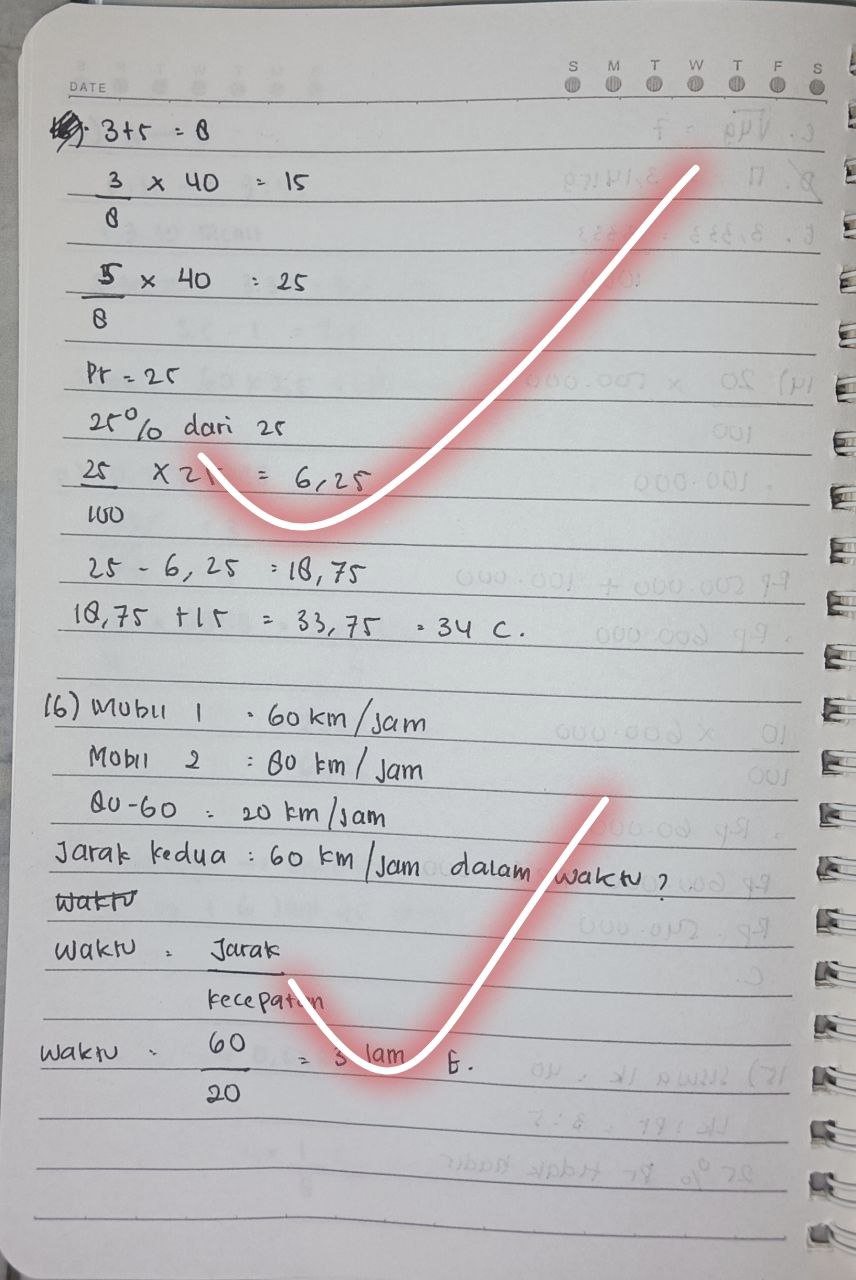 DATE
S M T W T F S
3+5 = 8
3/8 x 40 = 15
5/8 x 40 = 25
Pr = 25
25% dari 25
25/100 x 25 = 6,25
25 - 6,25 = 18,75
18,75 + 15 = 33,75 = 34 C.
16) Mobil 1 = 60 km/jam
Mobil 2 = 80 km/jam
80-60 = 20 km/jam
Jarak kedua = 60 km/jam dalam waktu?
waktu
waktu = Jarak/kecepatan
waktu = 60/20 = 3 jam E.